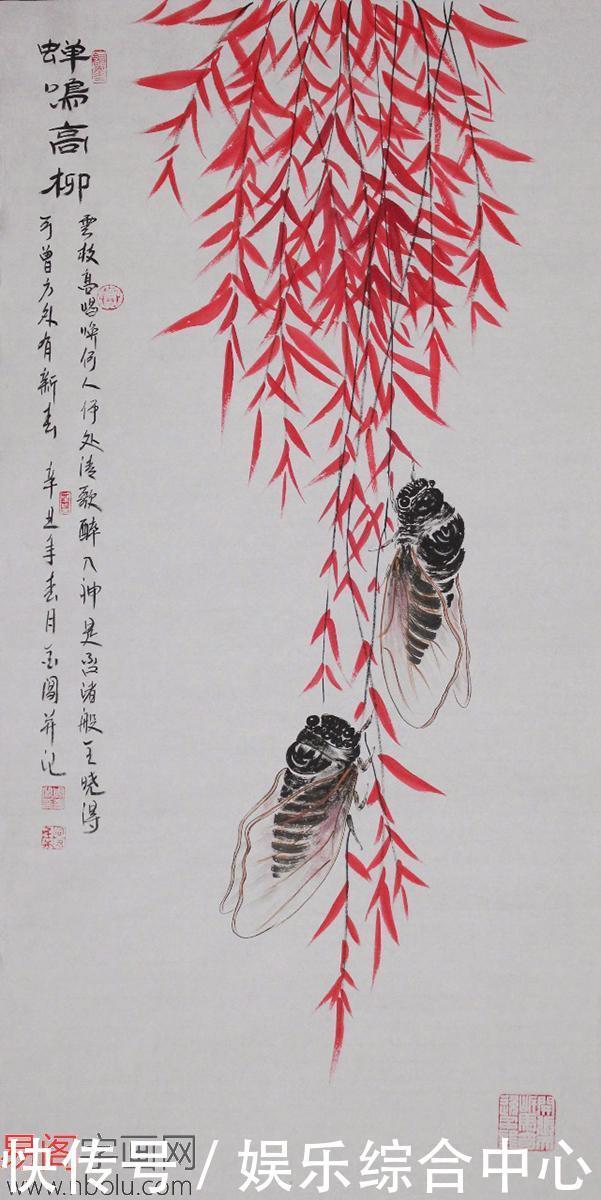 蝉鸣高柳
雲枝高唱唤何人伊处清歌醉入神是否诸般王晓得
可曾方外有新春 辛丑年春月 并记
易阁字画网
www.nbolu.com
快传号 / 娱乐综合中心